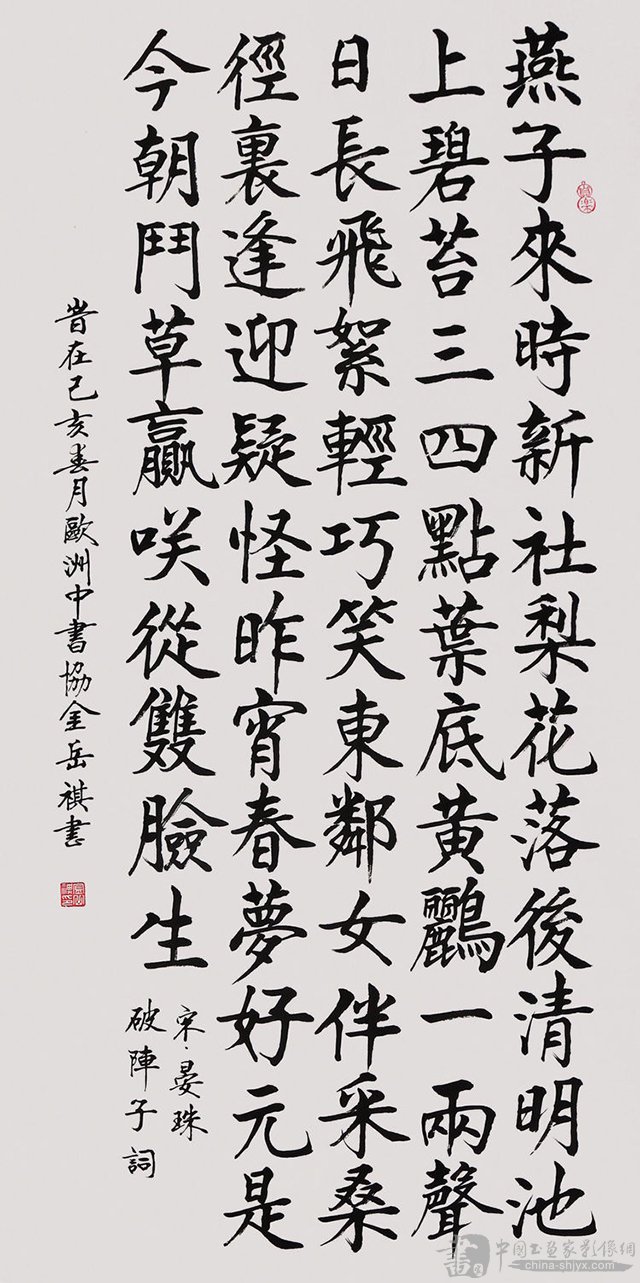 燕子來時新社梨花落後清明池
上碧苔三四點葉底黄鸝一兩聲
日長飛絮輕巧笑東鄰女伴采桑
徑裏逢迎疑怪昨宵春夢好元是
今朝鬥草贏咲從雙臉生
宋·晏珠
破陣子詞
旹在己亥春月歐洲中書協金岳祺書
書
中國书画家影像網
china-shjyx.com